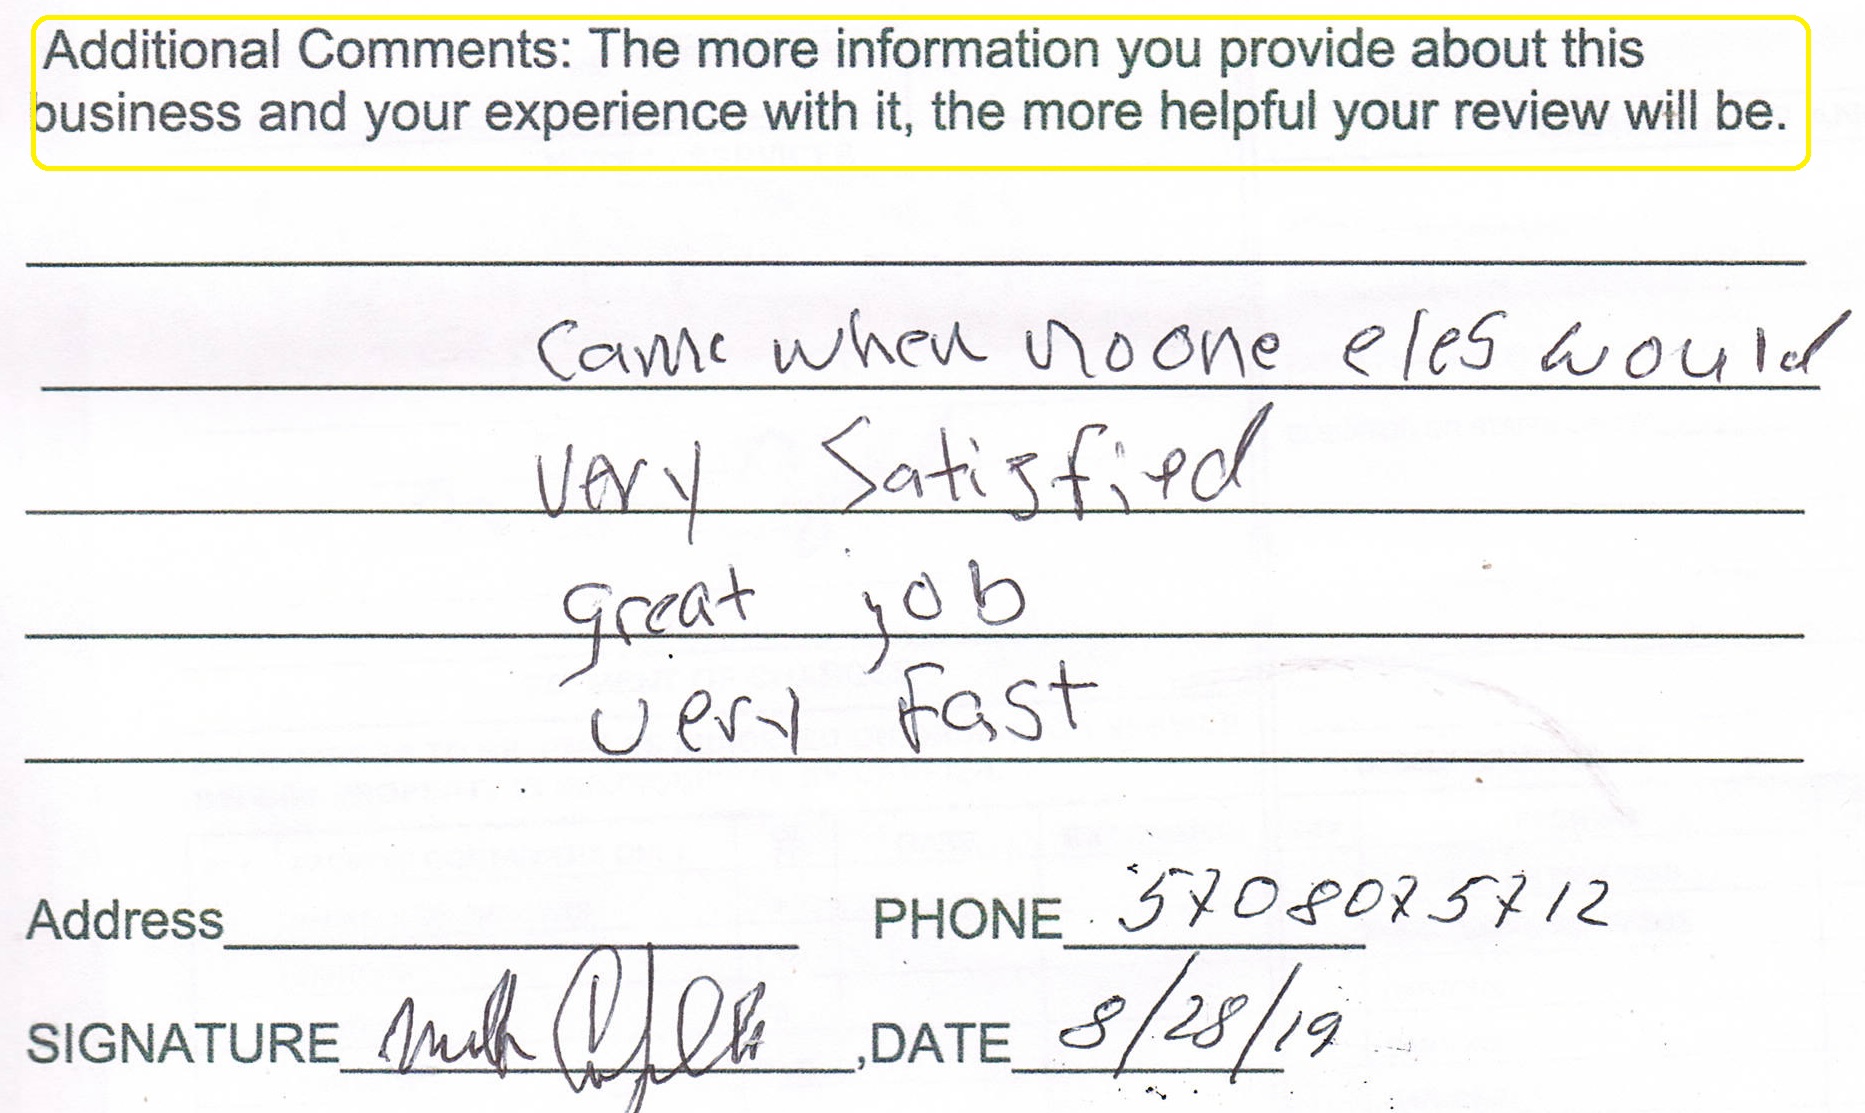 Additional Comments: The more information you provide about this
business and your experience with it, the more helpful your review will be.
Came when noone eles would
very Satisfied
great job
very Fast
Address PHONE 5708075712
SIGNATURE ,DATE 8/28/19